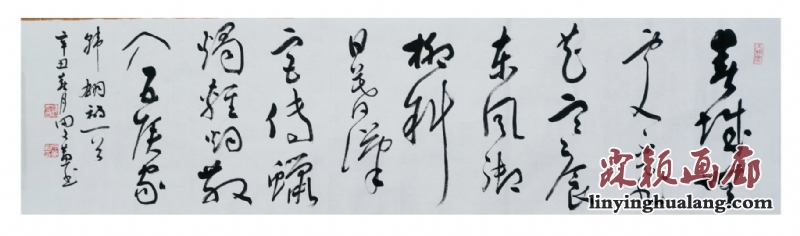 春城無
處不飛
花寒食
东风御
柳斜
日暮漢
宫傳蠟
燭輕烟散
入五侯家
韩翃詩一首
辛丑春月田书
霖颖画廊
linyinghualang.com